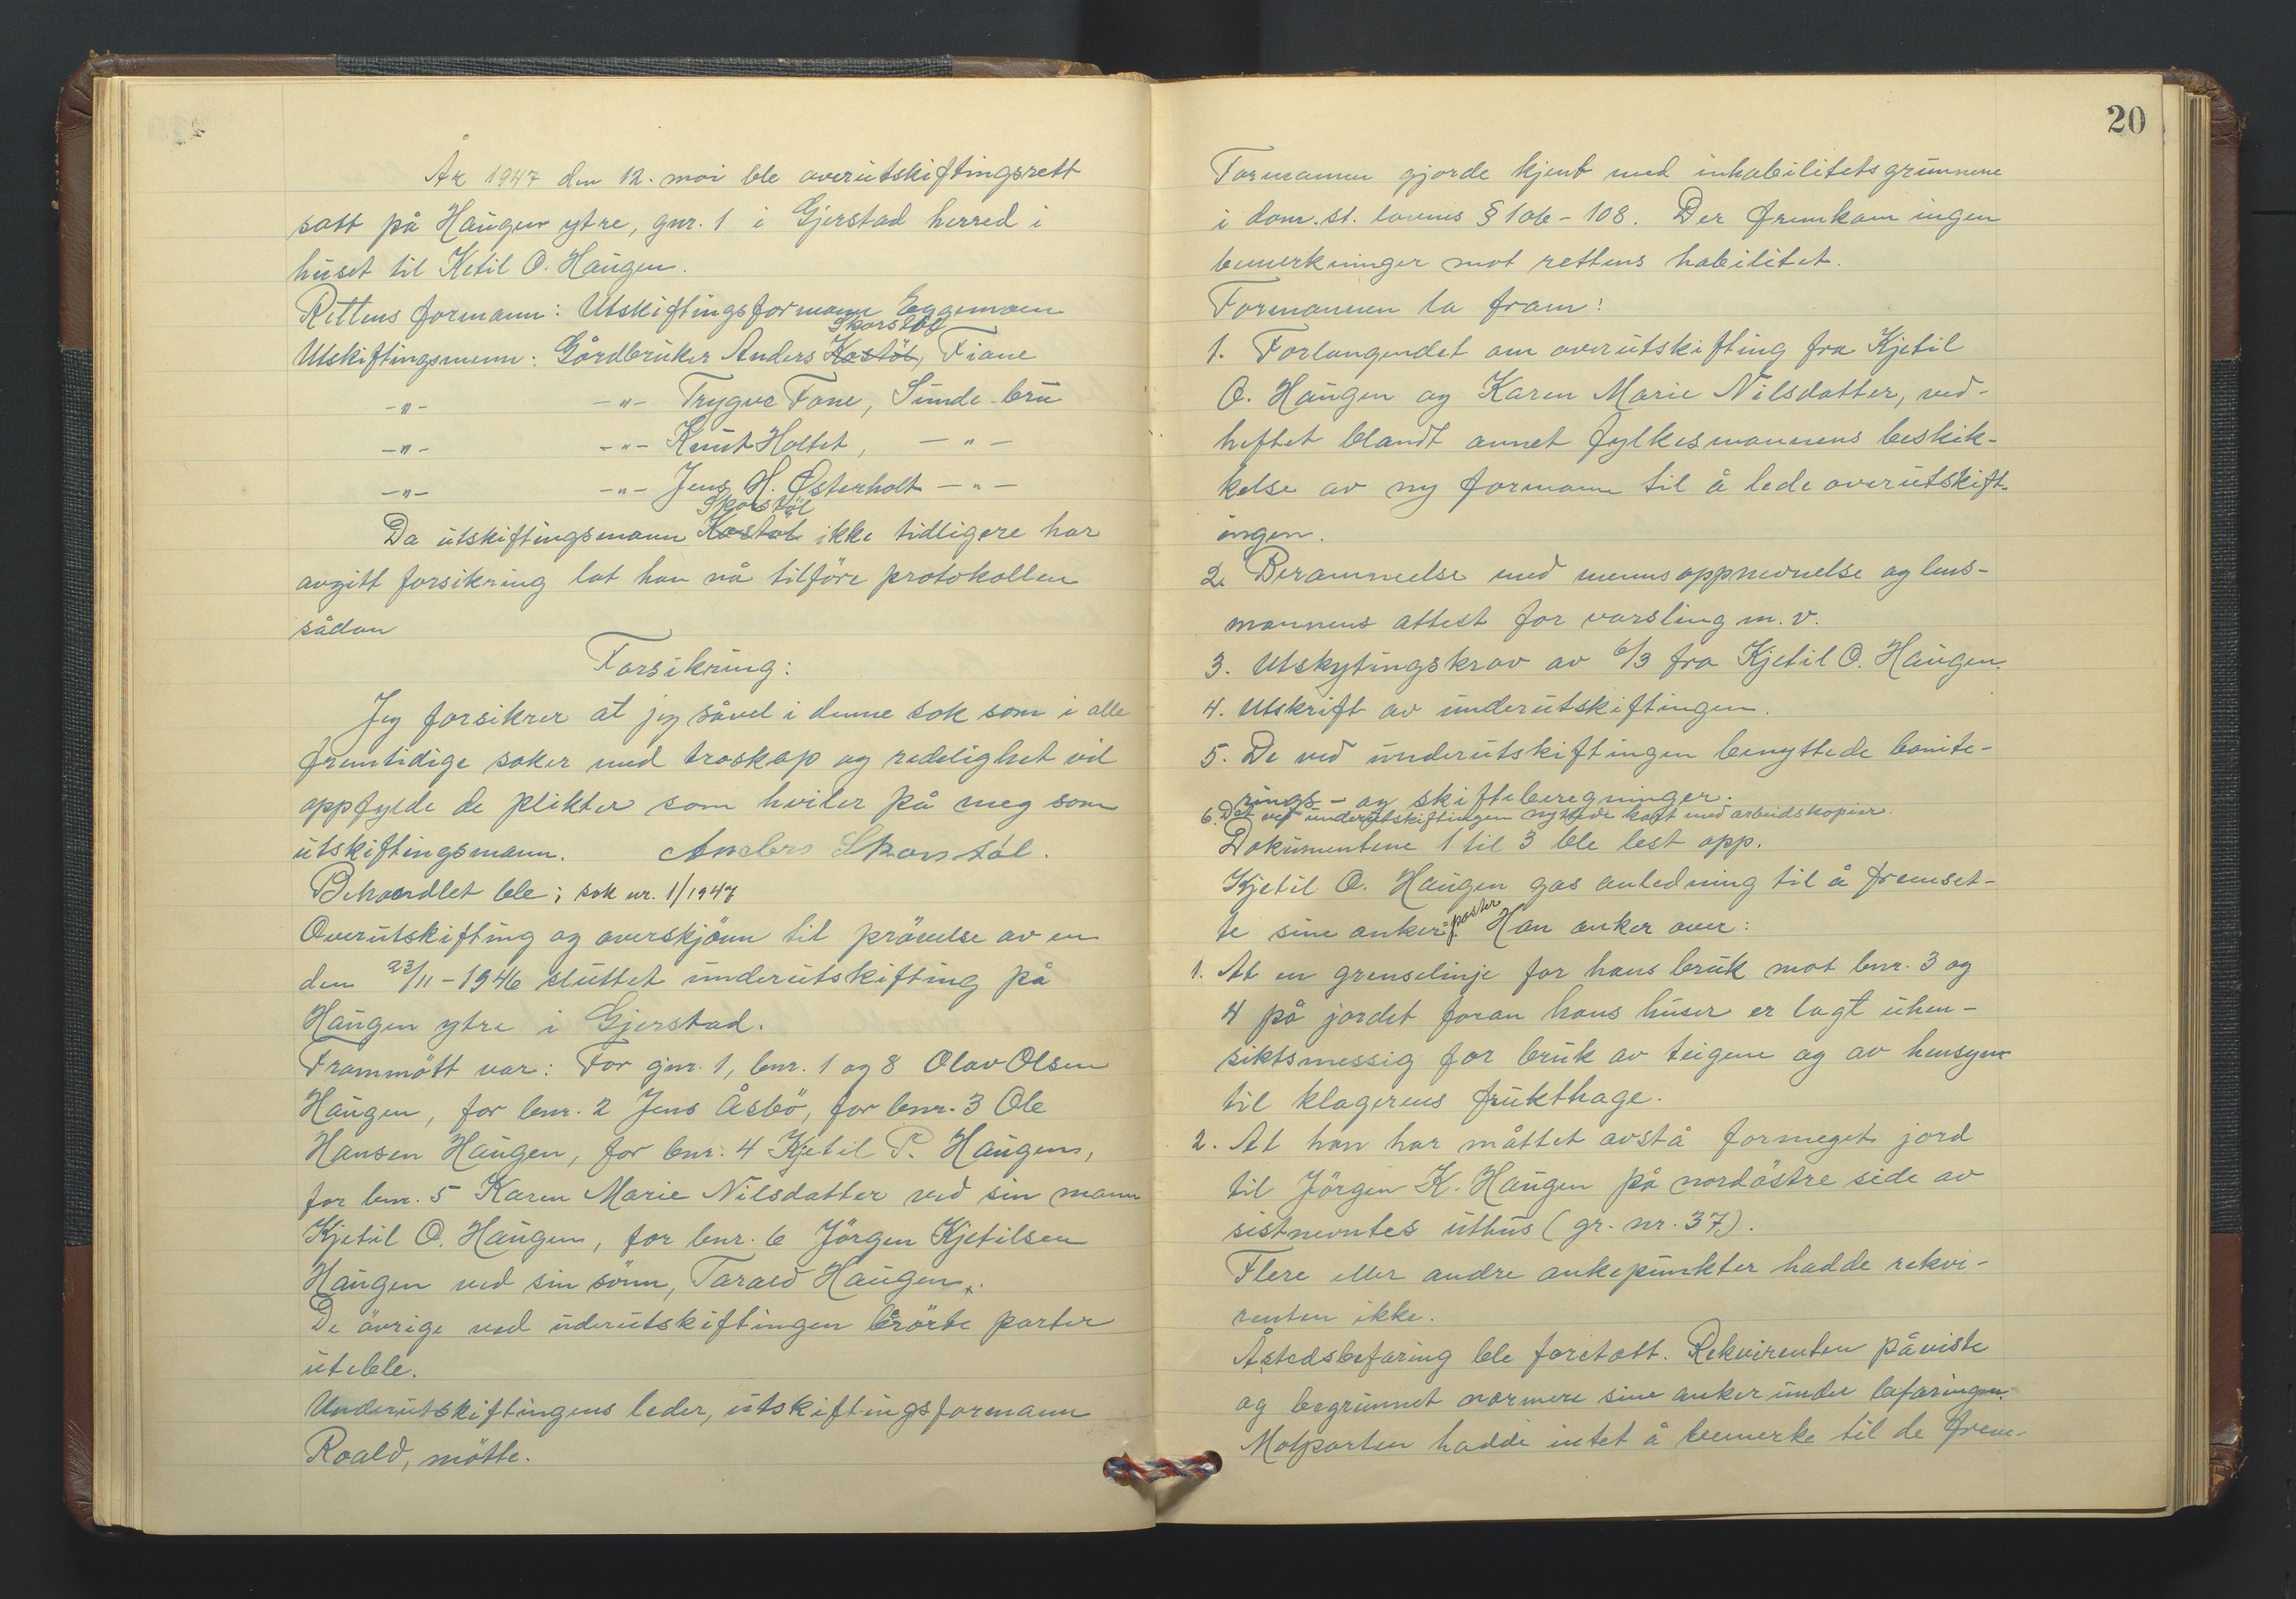 År 1947 den 12. mai ble overutskiftingsrett
satt på Haugen ytre, gnr. 1 i Gjerstad herred i
huset til Ketil O. Haugen.
Rettens formann: Utskiftingsformann Eggemoen
Skorstöl
Utskiftingsmenn: Gårdbruker Anders Kostöl, Fiane
-"- -"- Trygve Fone, Sunde-bru
-"- -"- Knut Holtet, -"-
-"- -"- Jens H. Østerholt -"-
Skorstöl
Da utskiftingsmann Kostöl ikke tidligere har
avgitt forsikring lot han nå tilföre protokollen
sådan
Forsikring:
Jeg forsikrer at jeg såvel i denne sak som i alle
fremtidige saker med troskap og redelighet vil
oppfylde de plikter som hviler på meg som
utskiftingsmann. Anders Skorstöl.
Behandlet ble: sak nr. 1/1947
Overutskifting og overskjönn til prövelse av en
den 23/11-1946 sluttet underutskifting på
Haugen ytre i Gjerstad.
Frammött var: For gnr. 1, bnr. 1 og 8 Olav Olsen
Haugen, for bnr. 2 Jens Åsbö, for bnr. 3 Ole
Hansen Haugen, for bnr. 4 Kjetil P. Haugen,
for bnr. 5 Karen Marie Nilsdatter ved sin mann
Kjetil O. Haugen, for bnr. 6 Jörgen Kjetilsen
Haugen ved sin sönn, Tarald Haugen.
De övrige ved uderutskiftingen berörte parter
uteble.
Underutskiftingens leder, utskiftingsformann
Roald, mötte.
20
Formannen gjorde kjent med inhabilitetsgrunnene
i dom.st. lovens § 106-108. Der fremkom ingen
bemerkninger mot rettens habilitet.
Formannen la fram:
1. Forlangendet om overutskifting fra Kjetil
O. Haugen og Karen Marie Nilsdatter, ved-
heftet blandt annet fylkesmannens beskik-
kelse av ny formann til å lede overutskift-
ingen.
2. Berammelse med mennsoppnevnelse og lens-
mannens attest for varsling m.v.
3. Utskytingskrav av 6/3 fra Kjetil O. Haugen.
4. Utskrift av underutskiftingen.
5. De ved underutskiftingen benyttede bonite-
rings- og skifteberegninger.
6. Det ved underutskiftingen nyttede kart med arbeidskopier.
Dokumentene 1 til 3 ble lest opp.
Kjetil O. Haugen gas anledning til å fremset-
te sine anker-poster. Han anker over:
1. At en grenselinje for hans bruk mot bnr. 3 og
4 på jordet foran hans huser er lagt uhen-
siktsmessig for bruk av teigene og av hensyn
til klagerens frukthage.
2. At han har måttet avstå formeget jord
til Jörgen K. Haugen på nordöstre side av
sistnevntes uthus (gr. nr. 37).
Flere eller andre ankepunkter hadde rekvi-
renten ikke.
Åstedsbefaring ble foretatt. Rekvirenten påviste
og begrunnet nærmere sine anker under befaringen.
Motparten hadde intet å bemerke til de frem-